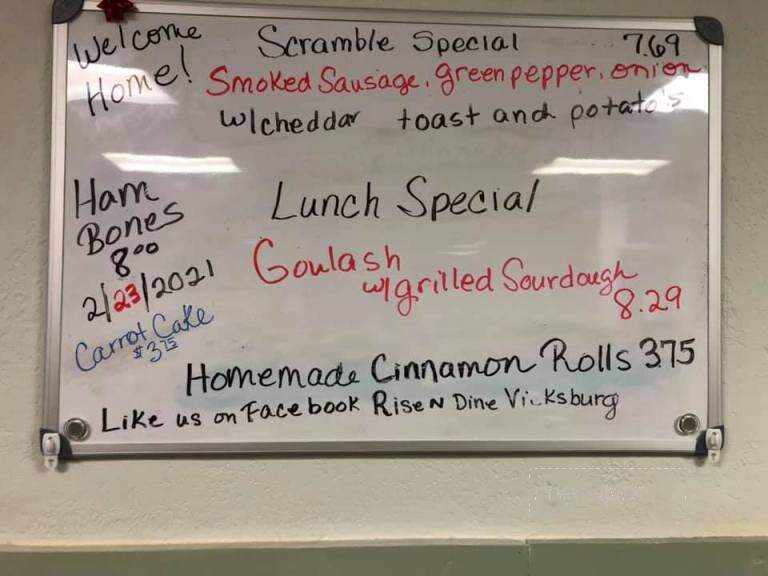 Welcome
Home!
Scramble Special 7.69
Smoked Sausage, green pepper, onion
w/cheddar toast and potato's
Ham
Bones
8.00
2/23/2021
Carrot Cake
$3.75
Lunch Special
Goulash
w/grilled Sourdough
8.29
Homemade Cinnamon Rolls 3.75
Like us on Facebook Rise N Dine Vicksburg